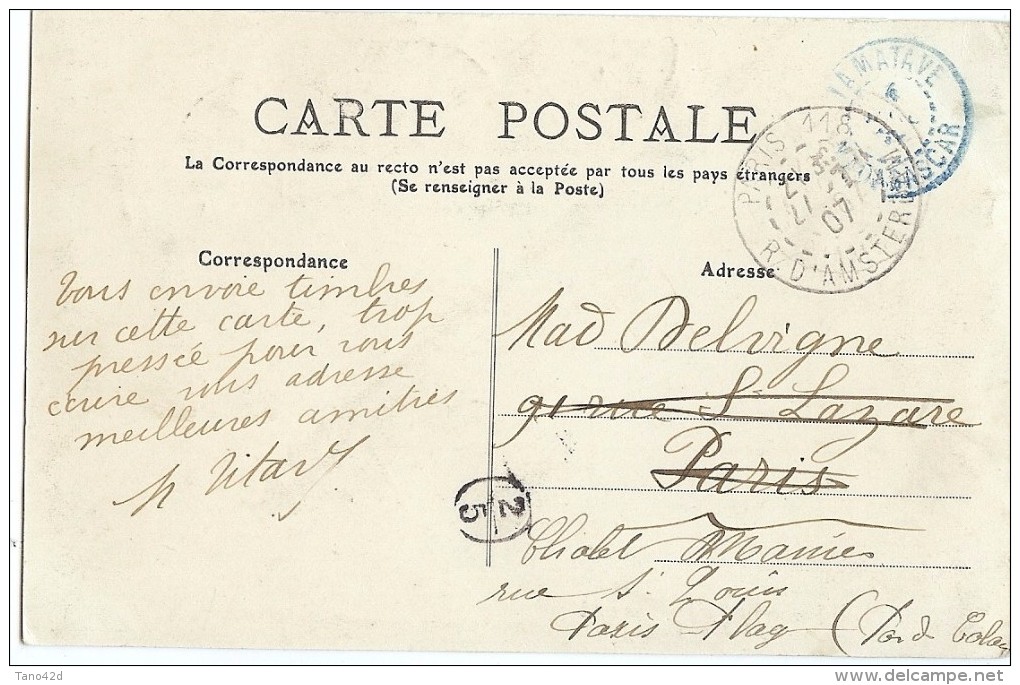 CARTE POSTALE
La Correspondance au recto n'est pas acceptée par tous les pays étrangers
(Se renseigner à la Poste)
TAMATAVE
PARIS 118
07
R. D'AMSTERD
Correspondance
Vous envoie timbres
sur cette carte, trop
pressée pour vous
écrire vous adresse
meilleures amitiés
Adresse
Mad Delvigne
91 rue St Lazare
Paris
25
Chalet
rue St Louis
Paris Plag (Pas d
Tano42d
delcampe.net